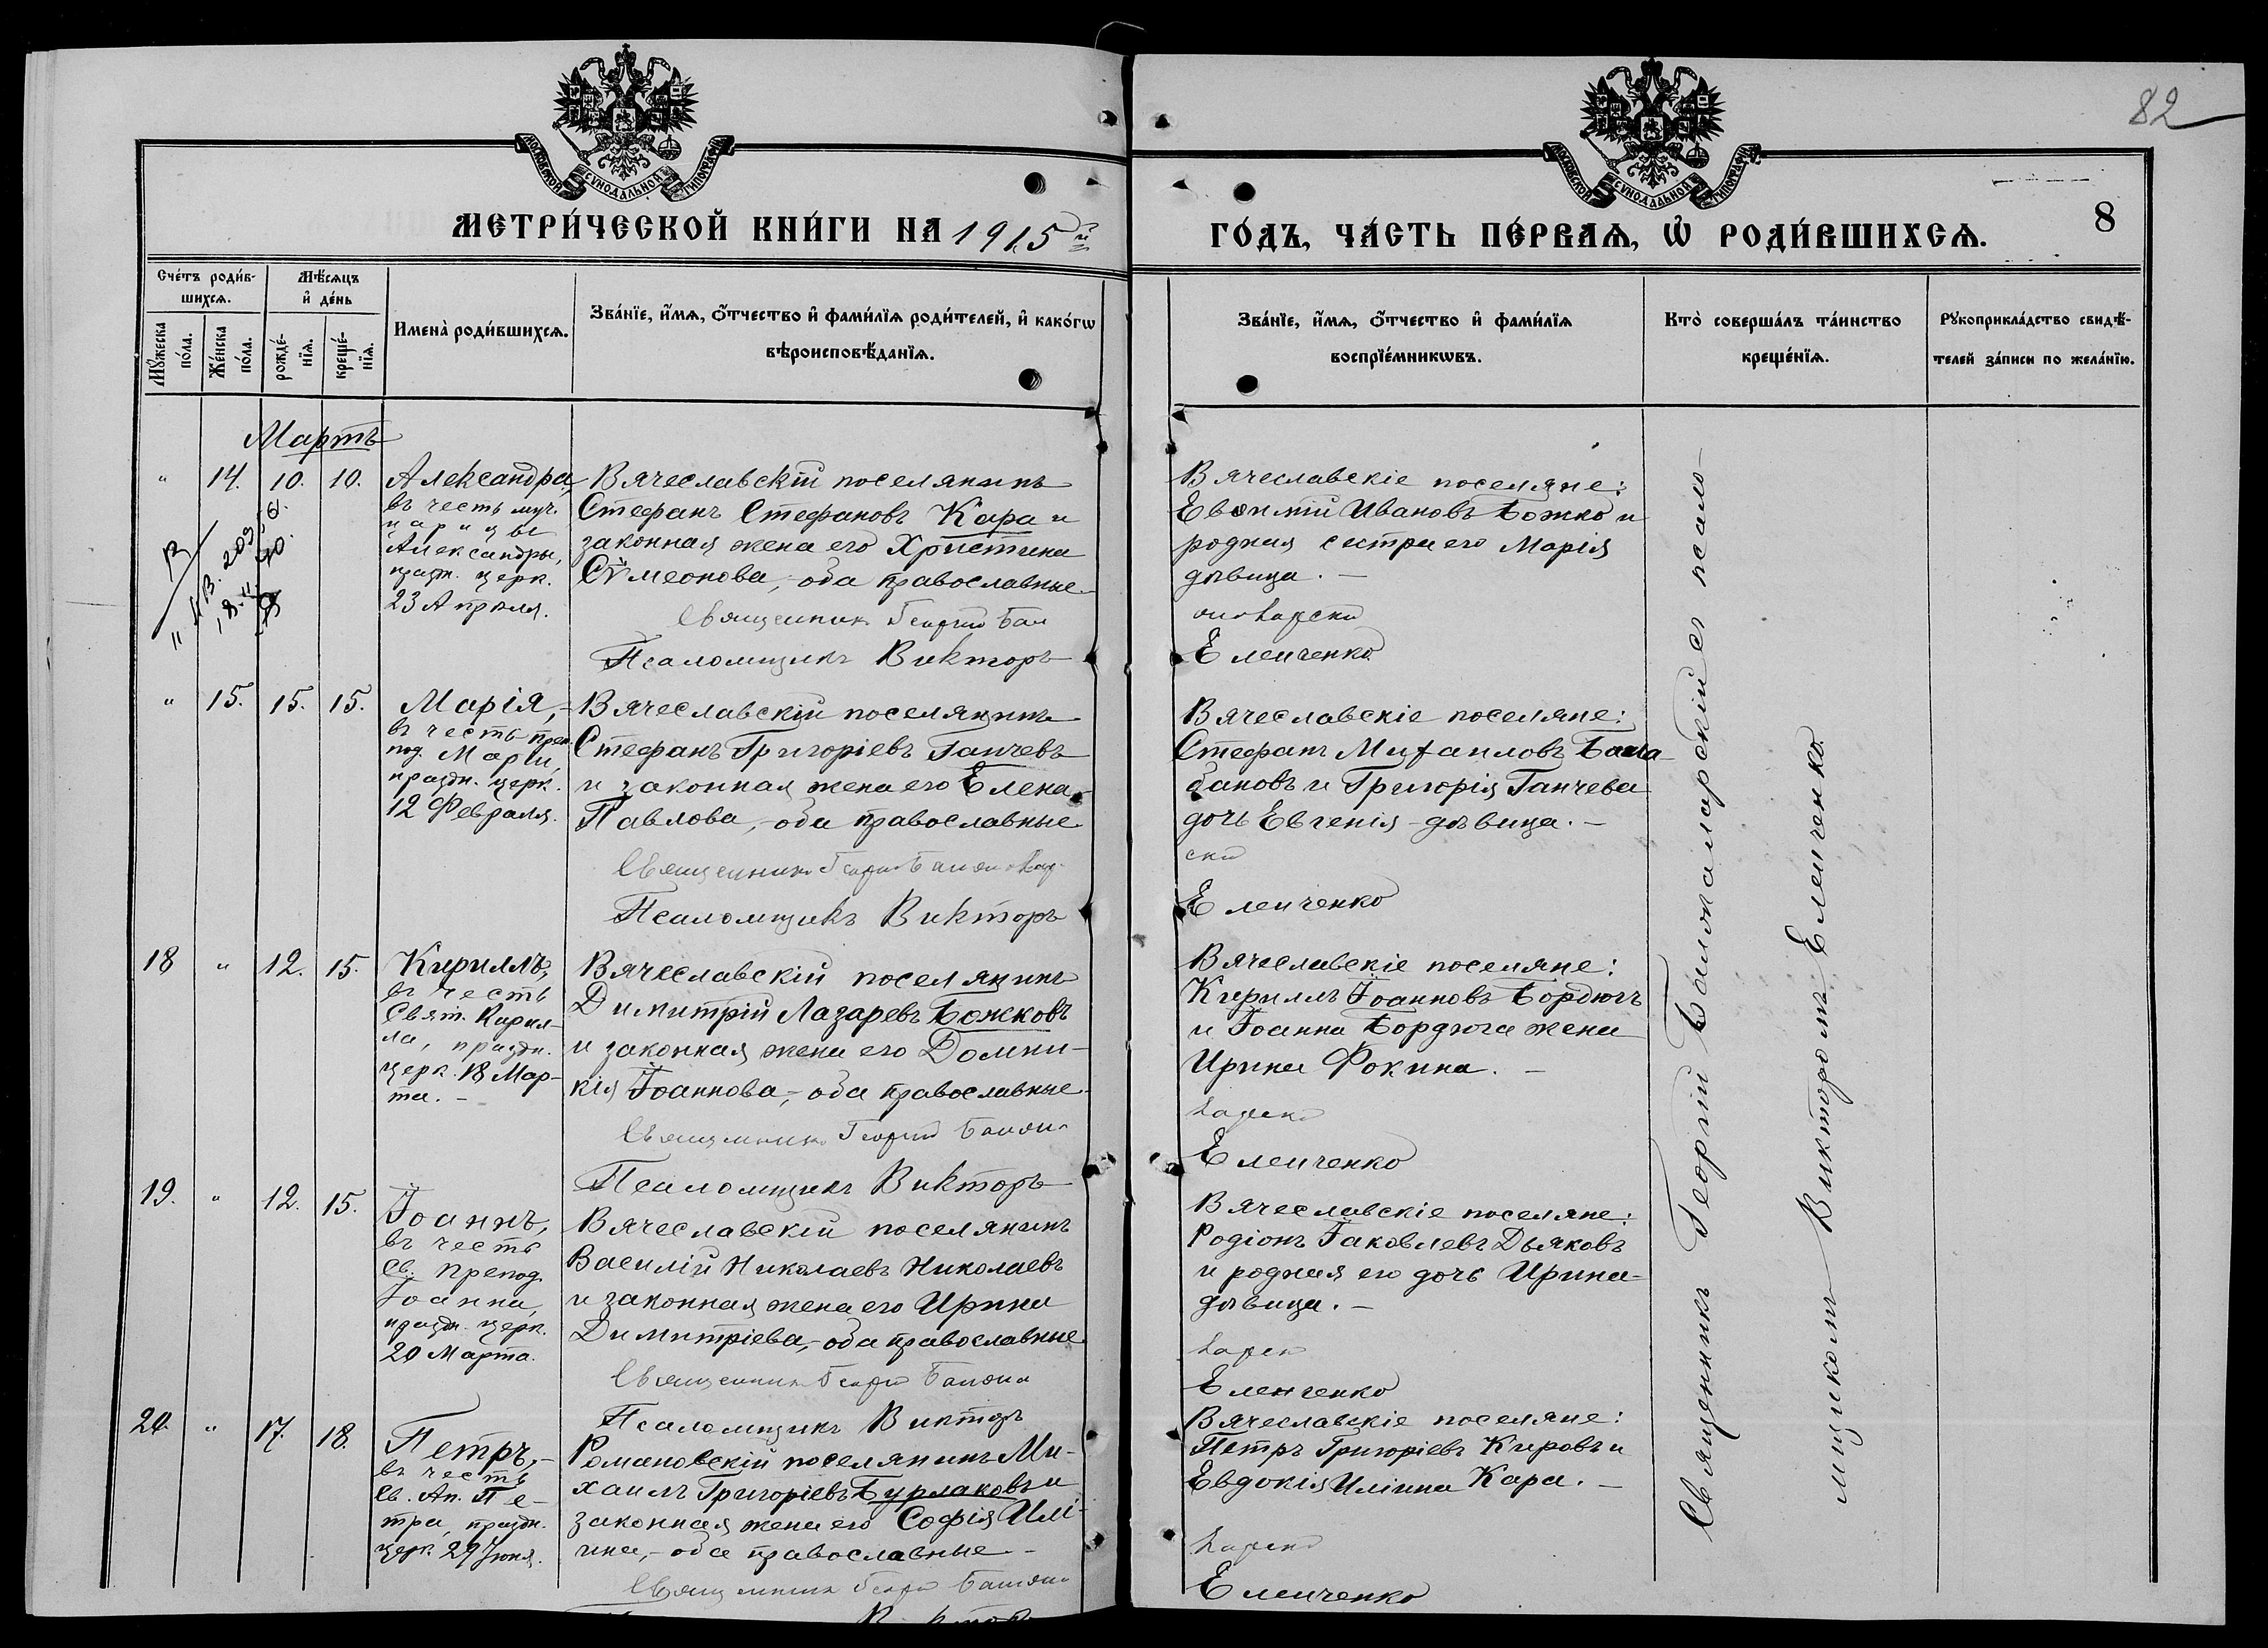 82
МОСКОВСКОЙ СѴНОДАЛЬНОЙ ТИПОГРАФІИ
МОСКОВСКОЙ СѴНОДАЛЬНОЙ ТИПОГРАФІИ
МЕТРИ́ЧЕСКОЙ КНИ́ГИ НА 1915й
ГО́ДЪ, ЧА́СТЬ ПЕ́РВАѦ, Ѽ РОДИ́ВШИХСѦ.
8
Сче́тъ роди́в-
шихсѧ.
Мѣ́сѧцъ
и҆ де́нь
Мꙋ́жеска
по́ла.
Же́нска
по́ла.
рожде́-
нїѧ.
креще́-
нїѧ.
Имена̀ роди́вшихсѧ.
Зва́нїе, и҆́мѧ, ѻ҆́тчество и҆ фами́лїѧ роди́телей, и҆ како́гѡ
вѣроисповѣ́данїѧ.
Зва́нїе, и҆́мѧ, ѻ҆́тчество и҆ фами́лїѧ
воспрїе́мникѡвъ.
Кто̀ соверша́лъ та́инство
креще́нїѧ.
Рꙋкоприкла́дство свидѣ́-
телей за́писи по жела́нїю.
Мартъ
" 14. 10. 10.
Александра,
въ честь муч.
царицы
Александры,
празн. церк.
23 Апрѣля.
Вячеславскій поселянинъ
Стефанъ Стефановъ Кара и
законная жена его Христина
Сѵмеонова,- оба православные
Священникъ Георгій Бал
Псаломщикъ Викторъ
Вячеславскіе поселяне:
Евѳимій Ивановъ Божко и
родная сестра его Марія
дѣвица. -
Еленченко
" 15. 15. 15.
Марія,-
въ честь преп
под. Маріи,
праздн. церк.
12 Февраля.
Вячеславскій поселянинъ
Стефанъ Григоріевъ Ганчевъ
и законная жена его Елена
Павлова,- оба православные
Священникъ Георгій
Псаломщикъ Викторъ
Вячеславскіе поселяне:
Стефанъ Михаиловъ Бала-
бановъ и Григорія Ганчева
дочь Евгенія - дѣвица. -
скій
Еленченко
18 " 12. 15.
Кириллъ,
въ честь
Свят. Кирил-
ла, праздн.
церк. 18 Мар-
та. -
Вячеславскій поселянинъ
Димитрій Лазаревъ Божковъ
и законная жена его Домни-
кія Іоаннова,- оба православные
Священникъ Георгій
Псаломщикъ Викторъ
Вячеславскіе поселяне:
Кириллъ Іоанновъ Бордюгъ
и Іоанна Бордюга жена
Ирина Фокина. -
Еленченко
19. " 12. 15.
Іоаннъ,
въ честь
Св. Препод.
Іоанна,
праздн. церк.
20 Марта.
Вячеславскій поселянинъ
Василій Николаевъ Николаевъ
и законная жена его Ирина
Димитріева,- оба православные
Священникъ Георгій
Псаломщикъ Викторъ
Вячеславскіе поселяне:
Родіонъ Іаковлевъ Дьяковъ
и родная его дочь Ирина-
дѣвица. -
Еленченко
20. " 17. 18.
Петръ,-
въ честь
Св. Ап. Пе-
тра, праздн.
церк. 29 Іюня.
Романовскій поселянинъ Ми-
хаилъ Григоріевъ Бурлаковъ и
законная жена его Софія Илі-
ина,- оба православные -
Священникъ Георгій
Вячеславскіе поселяне:
Петръ Григоріевъ Кировъ и
Евдокія Иліина Кара. -
Еленченко
Священникъ Георгій Балоналарскій съ псало-
мщикомъ Викторомъ Еленченко